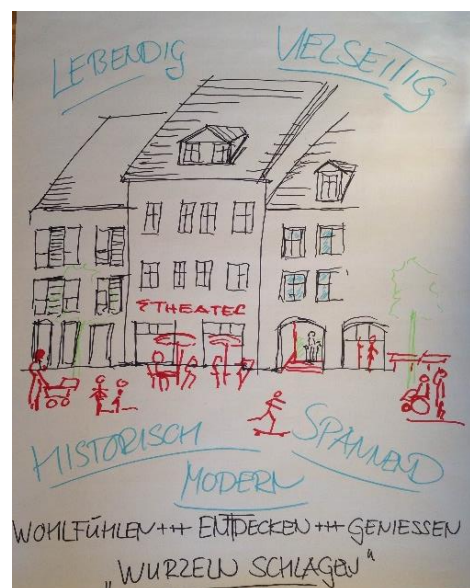 LEBENDIG VIELSEITIG
THEATER
HISTORISCH SPANNEND
MODERN
WOHLFÜHLEN +++ ENTDECKEN +++ GENIESSEN
„WURZELN SCHLAGEN“